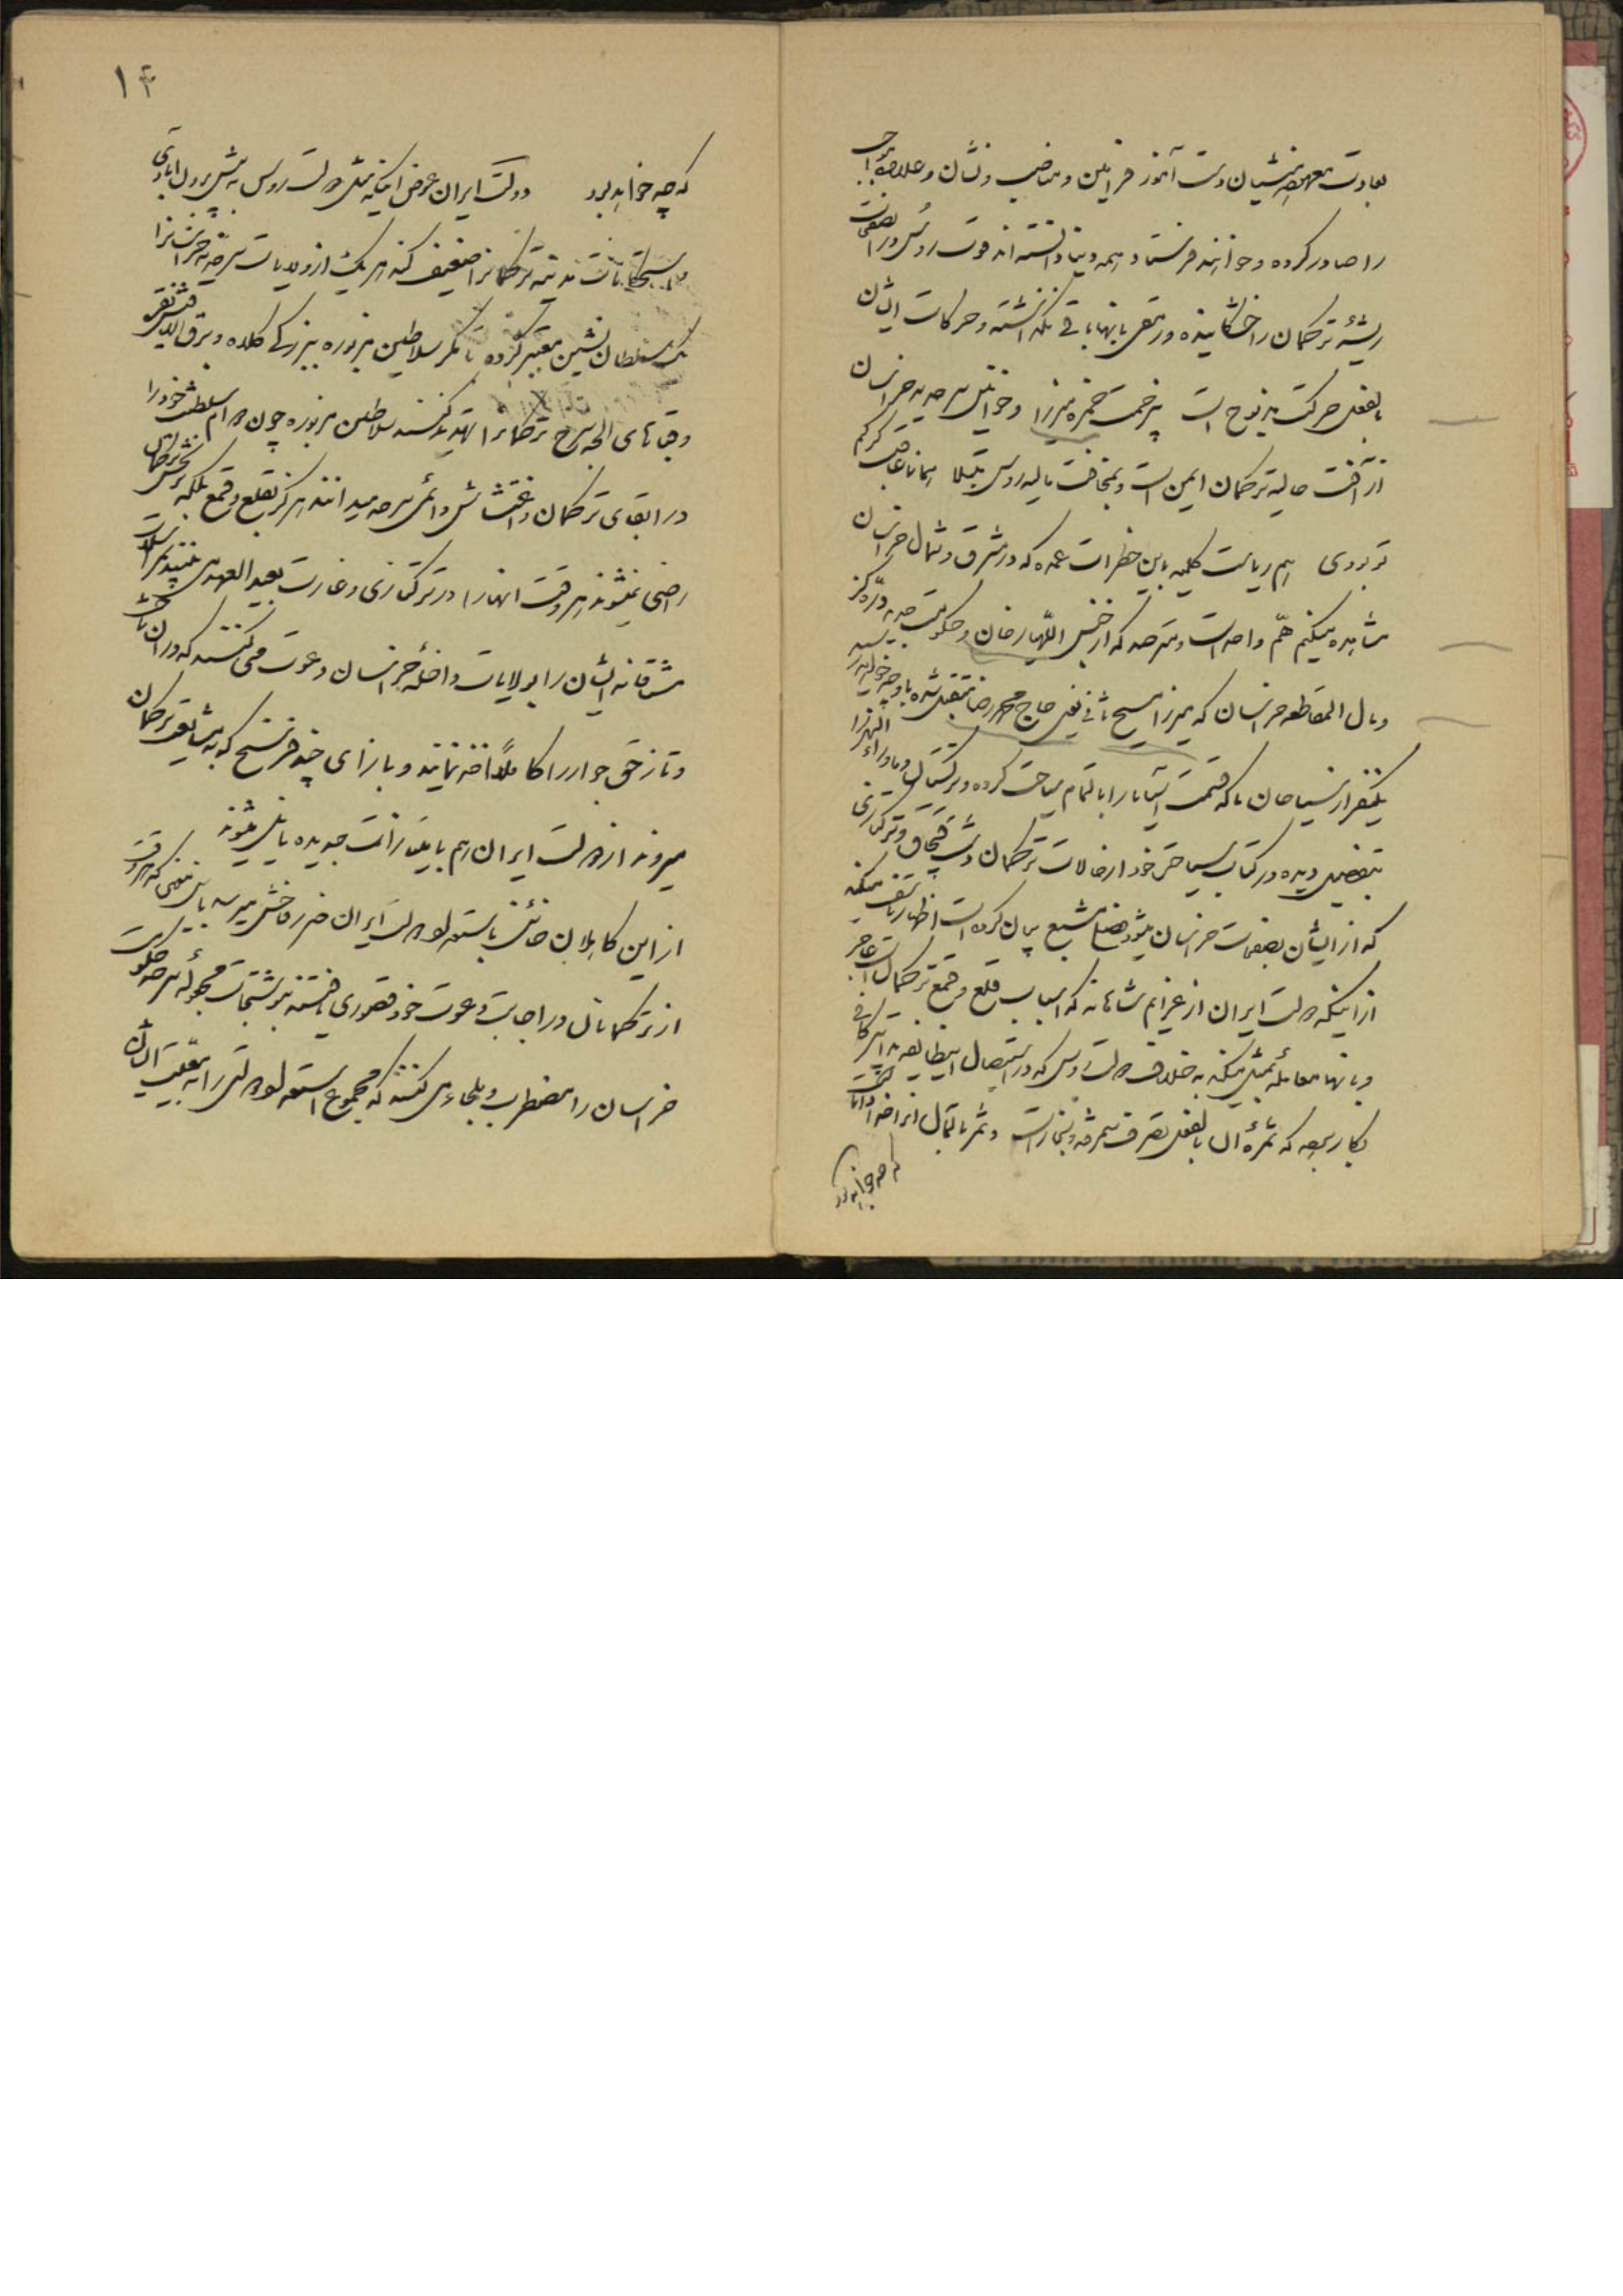 بعادت معهود منشیان دست آموز فرامین و مناصب و نشان و علاوه مواجب
را صادر کرده و خوانند فرستاد و همه دنیا دانسته‌اند قوت روس در آن صفحات
ریشه ترکمان را خشکانیده و رمقی بآنها باقی نگذاشته و حرکات ایشان
بالفعل حرکت مذبوح است بیزحمت حمزه میرزا و خوانین سرحدیه خراسان
از آفت حالیه ترکمان ایمن است و بمخافت مالیه روس مبتلا همانا عاقبت گرگ
تو بودی هم ریاست کلیه باین خطرات عمده که در مشرق و شمال خراسان
مشاهده میکنیم هم واحد است و سرحد که از جنس اللهیار خان و حکومت دره گز
و مال المقاطعه خراسان که میرزا مسیح ثانی یعنی حاج محمد رضا متقبل شده باو چه خواهد رسید
یکنفر از سیاحان ما که قسمت آسیا را با تمام سیاحت کرده و ترکستان و ماوراء النهر را
بتفصیل دیده در کتاب سیاحتی خود از حالات ترکمان دشت قبچاق و ترکتازی
که از ایشان بصفحات خراسان میشود فصل مشبع بیان کرده است اظهار تأسف میکند
از اینکه دولت ایران از عزایم شاهانه که اسباب قلع و قمع ترکمان است عاجز
و بآنها معامله بمثل میکند به خلاف دولت روس که در استیصال این طایفه تدابیر کافی
بکار برده که ثمره آن بالفعل تصرف سمرقند و بخارا است و ثمر مآل آنرا خدا داناست
که چه خواهد بود
۱۴
که چه خواهد بود دولت ایران عوض اینکه مثل دولت روس به پیش بردن آبادی
و استحکامات مدینه ترکمان را ضعیف کند هر یک از ولایات سرحدیه خراسان را
یک سلطان نشین معتبر کرده تا مگر سلاطین مزبوره ببزرگی کلاه و برق الماس
و قباهای الجه سرخ ترکمان را تهدید کنند سلاطین مزبوره چون دوام سلطنت خود را
در ابقای ترکمان و اغتشاش دائمی سرحد میدانند هرگز بقلع و قمع بلکه
راضی نمیشوند هر وقت آنها را در ترکتازی و غارت بعید العهد می بینند
مشتاقانه ایشان را بولایات داخله خراسان دعوت می کنند که در آن
و تاز حق جوار را کاملاً اخذ نمایند و بازای چند فرسخ که به مشایعت ترکمان
میروند از دولت ایران هم بامتیازات جدیده نایل میشوند
از این کاهلان خائن باستعداد دولت ایران ضرر فاحش میرسد باین معنی که هر وقت
از ترکمانان در اجابت دعوت خود قصوری یافتند بنوشتجات مجعوله سرحد حکومت
خراسان را مضطرب و ملجاء می کنند که مجموع استعداد دولتی را به تعقیب ایشان